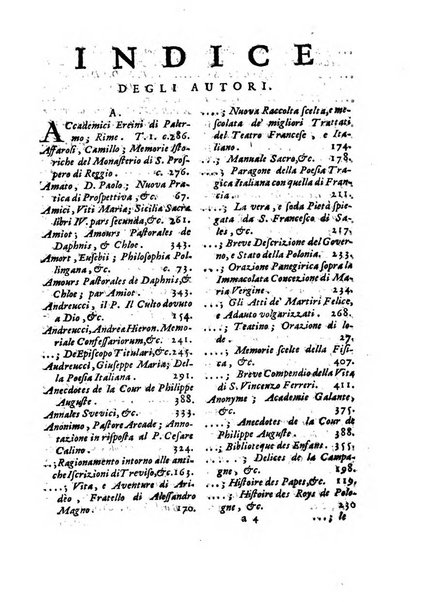 INDICE
DEGLI AUTORI.
A.
ACcademici Ereini di Paler-
mo; Rime. T. 1. c.286.
Affarosi, Camillo; Memorie Isto-
riche del Monasterio di S. Pros-
pero di Reggio. c. 276.
Amato, D. Paolo; Nuova Pra-
tica di Prospettiva, &c. 67.
Amici, Viti Maria; Sicilia Sacra
libri IV. pars secunda, &c. 261.
Amiot; Amours Pastorales de
Daphnis, & Chloe. 343.
Amort, Eusebii; Philosophia Pol-
lingana, &c. c. 73.
Amours Pastorales de Daphnis, &
Chloe; par Amiot. 343.
Andreucci, il P. Il Culto dovuto
a Dio, &c. 154.
Andreucci, Andrea Hieron. Memo-
riale Confessariorum, &c. 241.
...; De Episcopo Titulari, &c. 245.
Andreucci, Giuseppe Maria; Del-
la Poesia Italiana. 291.
Anecdotes de la Cour de Philippe
Auguste. 388.
Annales Suevici, &c. 333.
Anonimo, Pastore Arcade; Anno-
tazione in risposta al P. Cesare
Calino. 204.
...; Ragionamento intorno alle anti-
che Iscrizioni di Treviso, &c. 163.
...; Vita, e Aventure di Ari-
dèo, Fratello di Alessandro
Magno. 170.
...; Nuova Raccolta scelta, e me-
scolata de' migliori Trattati
del Teatro Francese, e Ita-
liano. 174.
...; Manuale Sacro, &c. 178.
...; Paragone della Poesia Tra-
gica Italiana con quella di Fran-
cia. 211.
...; La vera, e soda Pietà spie-
gata da S. Francesco di Sa-
les, &c. 217.
...; Breve Descrizione del Gover-
no, e Stato della Polonia. 233.
...; Orazione Panegirica sopra la
Immacolata Concezione di Ma-
ria Vergine. 234.
...; Gli Atti de' Martiri Felice,
e Adauto volgarizzati. 268.
...; Teatino; Orazione di lo-
de. 304.
...; Memorie scelte della Fisi-
ca, &c. 407.
...; Breve Compendio della Vita
di S. Vincenzo Ferreri. 411.
Anonyme; Academie Galante,
&c. 375.
...; Anecdotes de la Cour de
Philippe Auguste. 388.
...; Biblioteque des Enfans. 355.
...; Delices de la Campa-
gne, &c. 198.
...; Histoire des Papes, &c. 119.
...; Histoire des Roys de Polo-
gne, &c. 230
a 4 ...; le